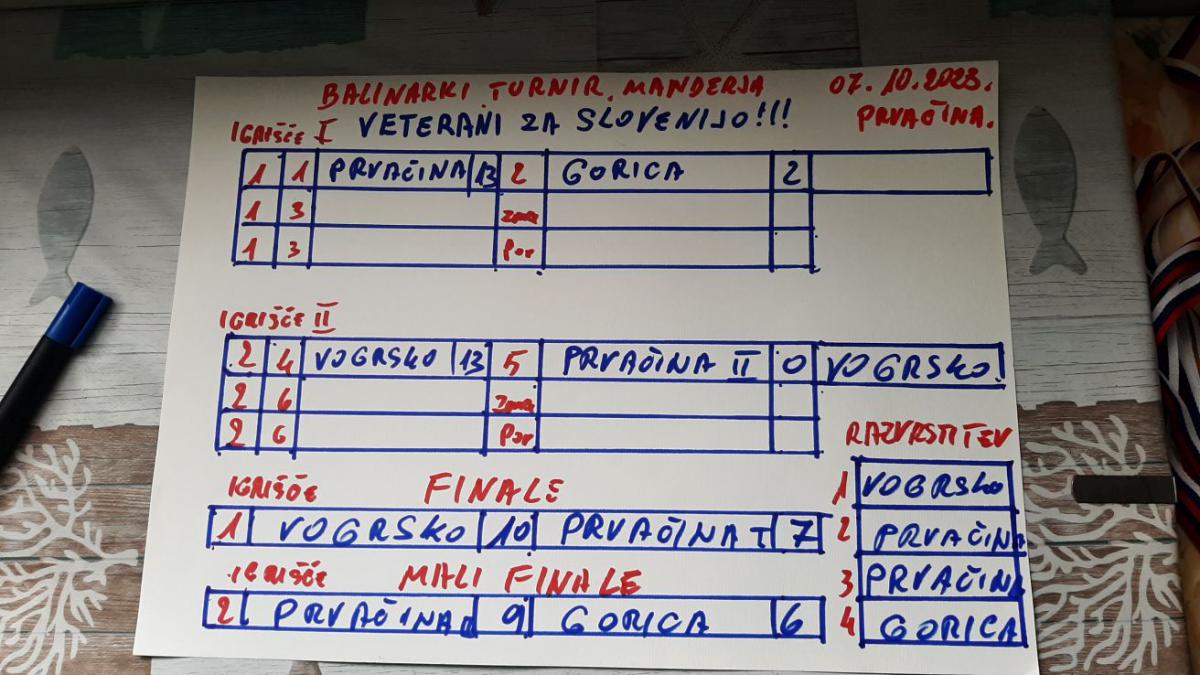 BALINARKI TURNIR, MANDERJA 07. 10. 2023.
VETERANI ZA SLOVENIJO!!! PRVAČINA.
IGRIŠČE I
1 1 PRVAČINA 13 2 GORICA 2
1 3 Zma
1 3 Por
IGRIŠČE II
2 4 VOGRSKO 13 5 PRVAČINA II 0 VOGRSKO!
2 6 Zma
2 6 Por
RAZVRSTITEV
1 VOGRSKO
2 PRVAČINA
3 PRVAČINA
4 GORICA
IGRIŠČE FINALE
1 VOGRSKO 10 PRVAČINA I 7
IGRIŠČE MALI FINALE
2 PRVAČINA 9 GORICA 6